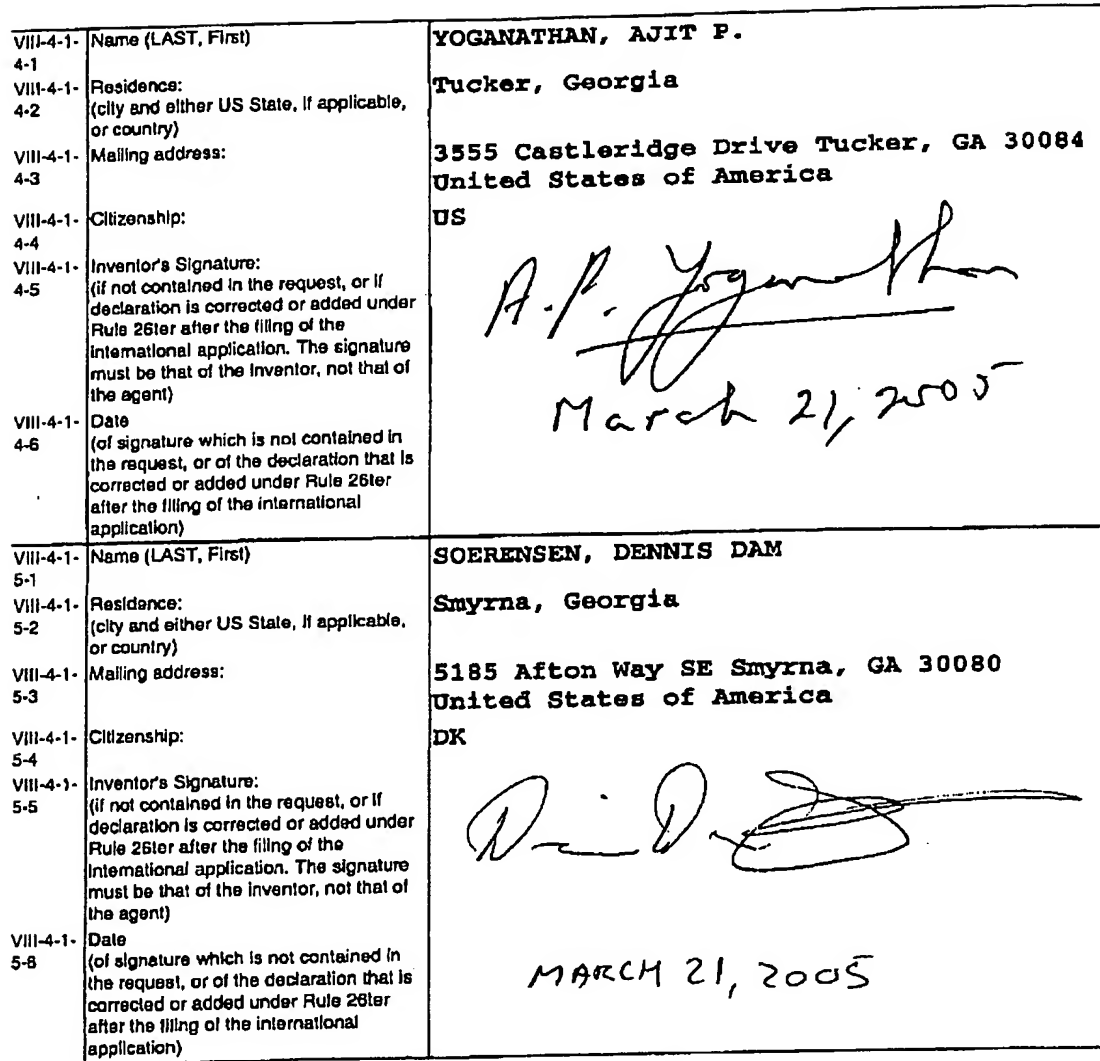 VIII-4-1- Name (LAST, First) YOGANATHAN, AJIT P.
4-1
VIII-4-1- Residence: Tucker, Georgia
4-2 (city and either US State, if applicable,
or country)
VIII-4-1- Mailing address: 3555 Castleridge Drive Tucker, GA 30084
4-3 United States of America
VIII-4-1- Citizenship: US
4-4
VIII-4-1- Inventor's Signature:
4-5 (if not contained in the request, or if
declaration is corrected or added under
Rule 26ter after the filing of the
international application. The signature
must be that of the inventor, not that of
the agent)
A.P. Yoganathan
VIII-4-1- Date March 21, 2005
4-6 (of signature which is not contained in
the request, or of the declaration that is
corrected or added under Rule 26ter
after the filing of the international
application)
VIII-4-1- Name (LAST, First) SOERENSEN, DENNIS DAM
5-1
VIII-4-1- Residence: Smyrna, Georgia
5-2 (city and either US State, if applicable,
or country)
VIII-4-1- Mailing address: 5185 Afton Way SE Smyrna, GA 30080
5-3 United States of America
VIII-4-1- Citizenship: DK
5-4
VIII-4-1- Inventor's Signature:
5-5 (if not contained in the request, or if
declaration is corrected or added under
Rule 26ter after the filing of the
international application. The signature
must be that of the inventor, not that of
the agent)
VIII-4-1- Date
5-6 (of signature which is not contained in
the request, or of the declaration that is MARCH 21, 2005
corrected or added under Rule 26ter
after the filing of the international
application)